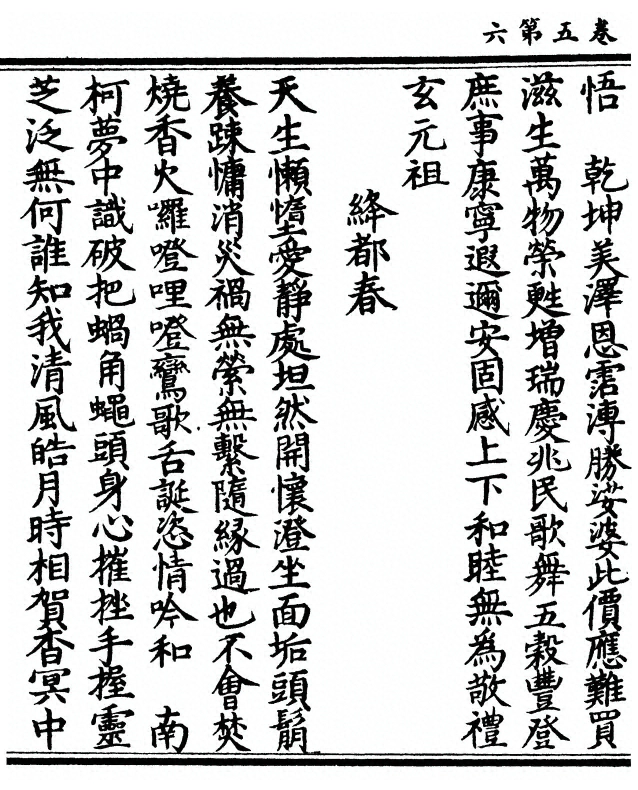 卷五第六
悟　乾坤美澤恩霑溥勝娑婆此價應難買
滋生萬物榮甦增瑞慶兆民歌舞五穀豐登
庶事康寧遐邇安固感上下和睦無為敬禮
玄元祖
絳都春
天生懶惰愛靜處坦然開懷澄坐面垢頭鬅
養踈慵消災禍無縈無繫隨緣過也不會焚
燒香火囉噔哩噔鸞歌舌誕恣情吟和　南
柯夢中識破把蝸角蠅頭身心摧挫手握靈
芝泛無何誰知我清風皓月時相賀杳冥中